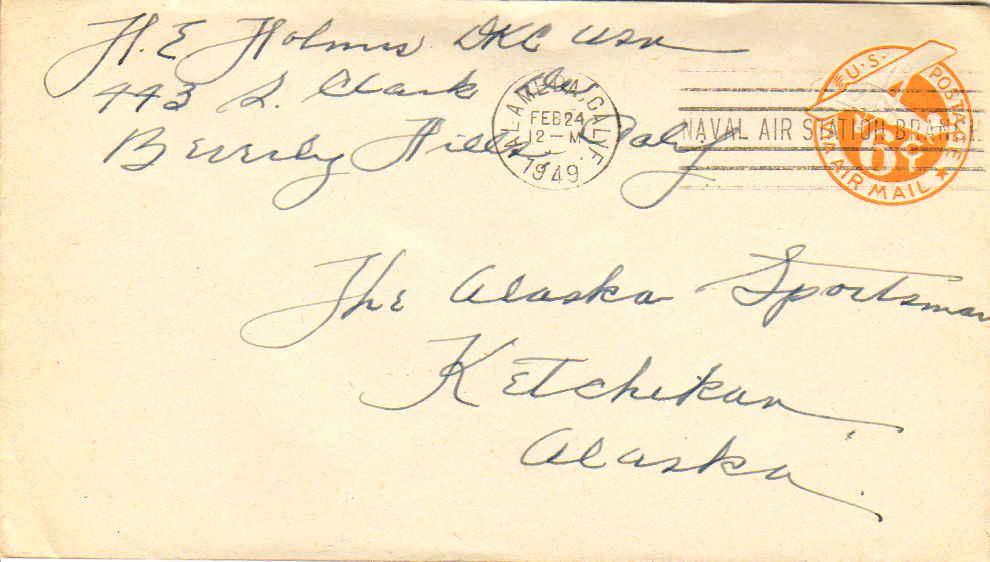 H. E Holmes DKC USN
443 S. Clark Dr
Beverly Hills, Calif
ALAMEDA, CALIF.
FEB 24
12 - M
1949
NAVAL AIR STATION BRANCH
U.S. POSTAGE
6¢
VIA AIR MAIL
The Alaska Sportsman
Ketchikan
Alaska.